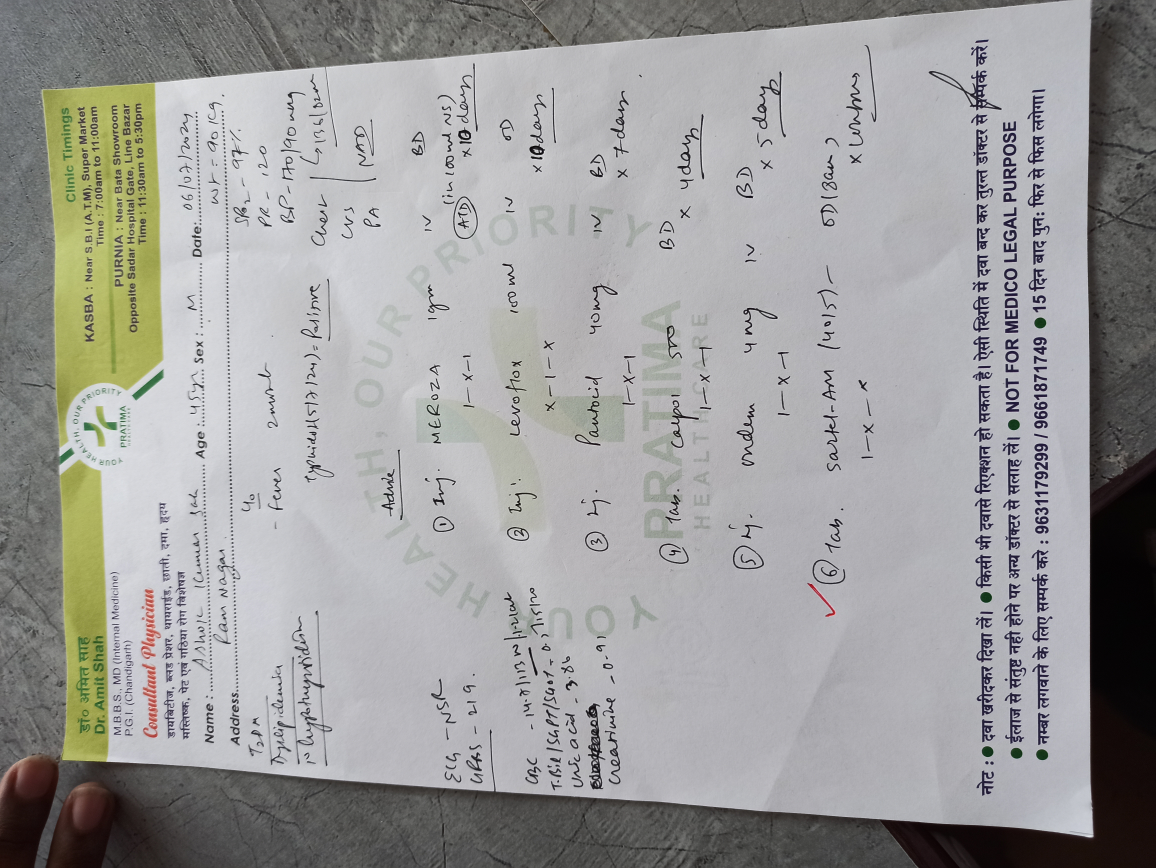 डॉ० अमित साह
Dr. Amit Shah
M.B.B.S., MD (Internal Medicine)
P.G.I. (Chandigarh)
Consultant Physician
डायबिटीज, ब्लड प्रेशर, थायराईड, छाती, दमा, हृदय
मस्तिष्क, पेट एवं गठिया रोग विशेषज्ञ
YOUR HEALTH, OUR PRIORITY
PRATIMA
HEALTHCARE
Clinic Timings
KASBA : Near S.B.I (A.T.M), Super Market
Time : 7:00am to 11:00am
PURNIA : Near Bata Showroom
Opposite Sadar Hospital Gate, Line Bazar
Time : 11:30am to 5:30pm
Name : Ashok Kumar Sah Age : 45yr Sex : M Date: 06/07/2024
Address Ram Nagar Wt - 90kg
T2DM
Dyslipidemia
Hypothyroidism
c/o
- Fever 2month
Typhidot (5/7/24) = Positive
SPO2 - 97%
PR - 120
BP - 170/90 mmHg
Chest
CVS
PA NAD
ECG - NSR
GRBS - 219
CBC
T.Bil/SGPT/SGOT
Uric acid - 3.86
Creatinine - 0.91
Advice
① Inj. MEROZA 1gm IV BD
1-x-1 (ATD) (in 100ml NS) x 10 days
② Inj. Levoflox 100ml IV OD
x-1-x x 10 days
③ Inj. Pantocid 40mg IV BD
1-x-1 x 7 days
④ Tab. Calpol 500 BD
1-x-1 x 4 days
⑤ Inj. Ondem 4mg IV BD
1-x-1 x 5 days
⑥ Tab. Sartel-AM (40/5) - OD (8am)
1-x-x
YOUR HEALTH, OUR PRIORITY
PRATIMA
HEALTHCARE
नोट : ● दवा खरीदकर दिखा लें। ● किसी भी दवासे रिएक्शन हो सकता है। ऐसी स्थिति में दवा बन्द कर तुरन्त डॉक्टर से सम्पर्क करें।
● ईलाज से संतुष्ट नही होने पर अन्य डॉक्टर से सलाह लें। ● NOT FOR MEDICO LEGAL PURPOSE
● नम्बर लगवाने के लिए सम्पर्क करे : 9631179299 / 9661871749 ● 15 दिन बाद पुनः फिर से फिस लगेगा।